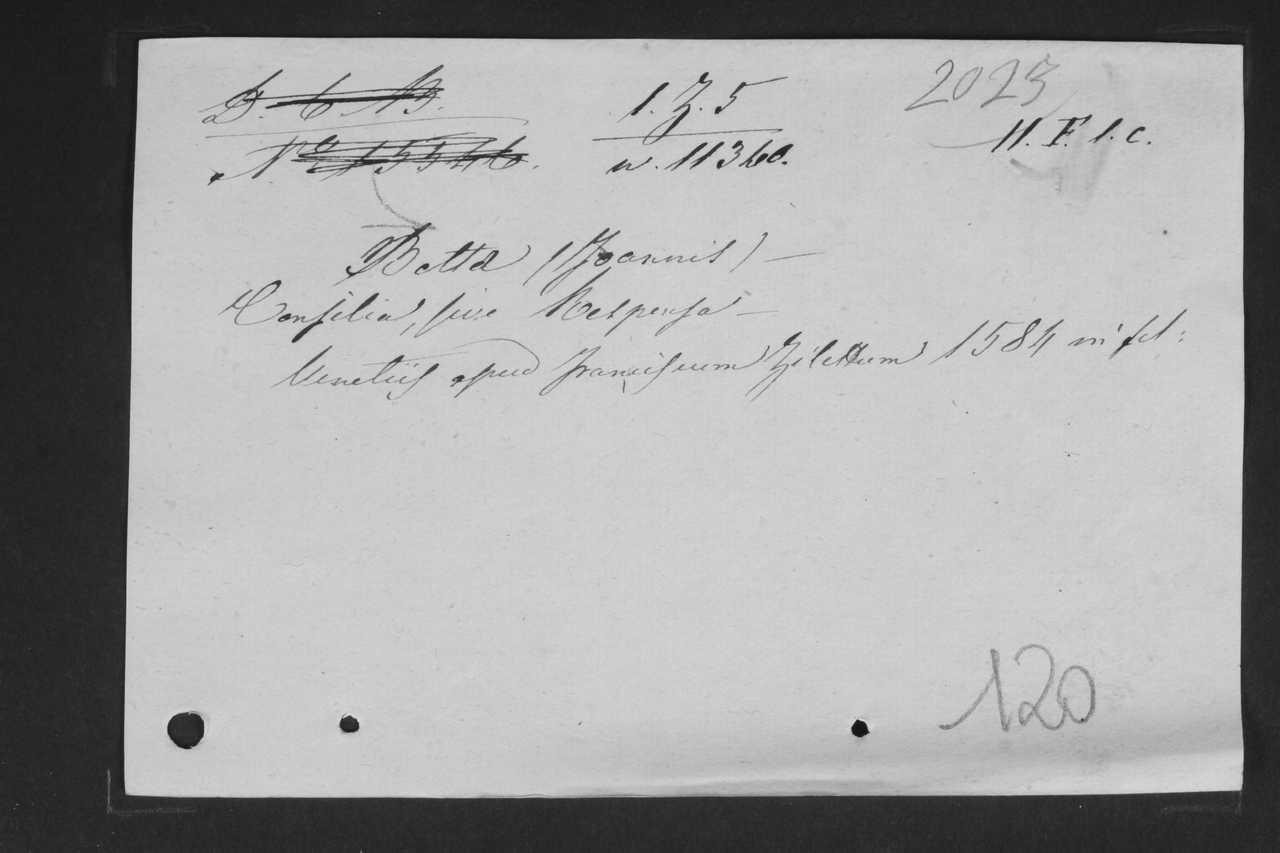 1. Z. 5
2023
n. 11360.
11. F. 1. c.
Botta (Joannis) —
Consilia, sive Responsa —
Venetiis apud Franciscum Zilettum 1584 in fol:
120